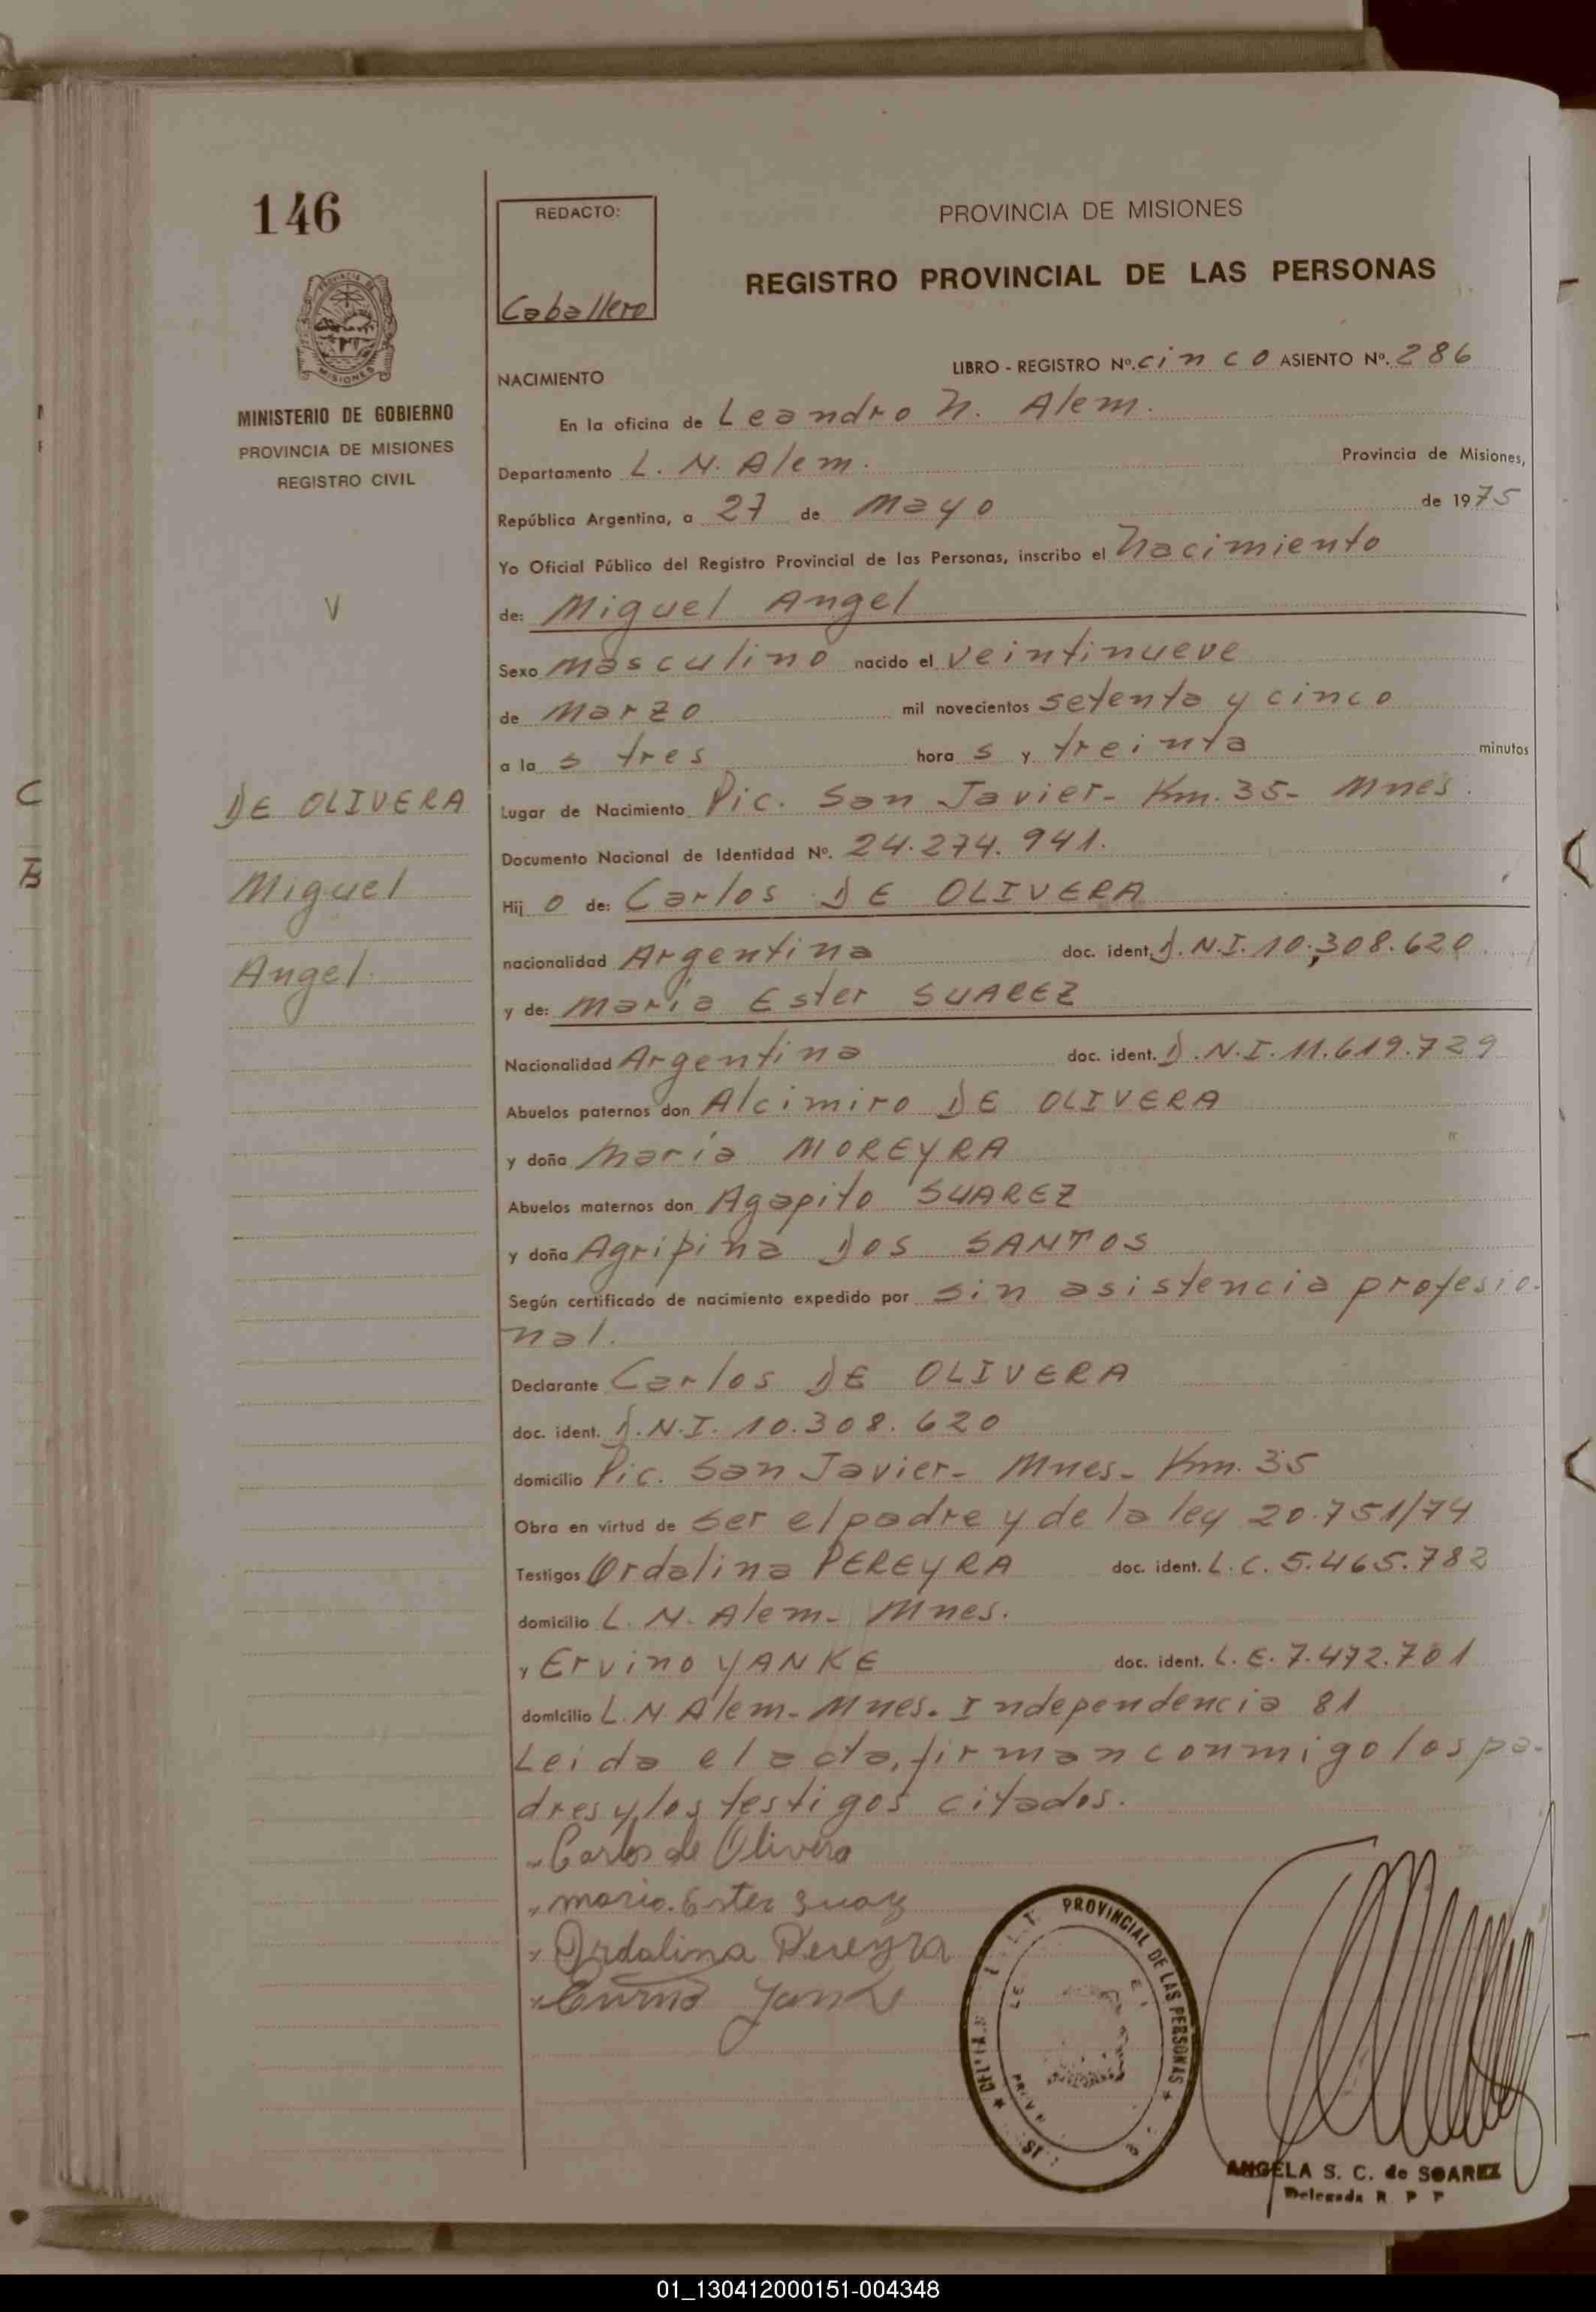 146
REDACTO:
Caballero
PROVINCIA DE MISIONES
REGISTRO PROVINCIAL DE LAS PERSONAS
MISIONES
MINISTERIO DE GOBIERNO
PROVINCIA DE MISIONES
REGISTRO CIVIL
V
DE OLIVERA
Miguel
Angel
NACIMIENTO
LIBRO - REGISTRO Nº. cinco ASIENTO Nº. 286
En la oficina de Leandro N. Alem.
Departamento L. N. Alem. Provincia de Misiones,
República Argentina, a 27 de Mayo de 1975
Yo Oficial Público del Registro Provincial de las Personas, inscribo el Nacimiento
de: Miguel Angel
Sexo Masculino nacido el veintinueve
de Marzo mil novecientos setenta y cinco
a la s tres hora s y treinta minutos
Lugar de Nacimiento Pic. San Javier- Km. 35- Mnes.
Documento Nacional de Identidad Nº. 24.274.941.
Hij o de: Carlos DE OLIVERA
nacionalidad Argentina doc. ident. D.N.I. 10.308.620
y de: María Ester SUAREZ
Nacionalidad Argentina doc. ident. D.N.I. 11.619.729
Abuelos paternos don Alcimiro DE OLIVERA
y doña María MOREYRA
Abuelos maternos don Agapito SUAREZ
y doña Agripina DOS SANTOS
Según certificado de nacimiento expedido por sin asistencia profesio-
nal.
Declarante Carlos DE OLIVERA
doc. ident. D.N.I. 10.308.620
domicilio Pic. San Javier- Mnes- Km. 35
Obra en virtud de ser el padre y de la ley 20.751/74
Testigos Ordalina PEREYRA doc. ident. L.C. 5.465.782
domicilio L. N. Alem- Mnes.
y Ervino YANKE doc. ident. L.E. 7.472.701
domicilio L.N Alem- Mnes. Independencia 81
Leida el acta, firman conmigo los pa-
dres y los testigos citados.
Carlos de Olivera
Ordalina Pereyra
PROVINCIAL DE LAS PERSONAS
ANGELA S. C. de SOAREZ
Delegada R P P
01_130412000151-004348